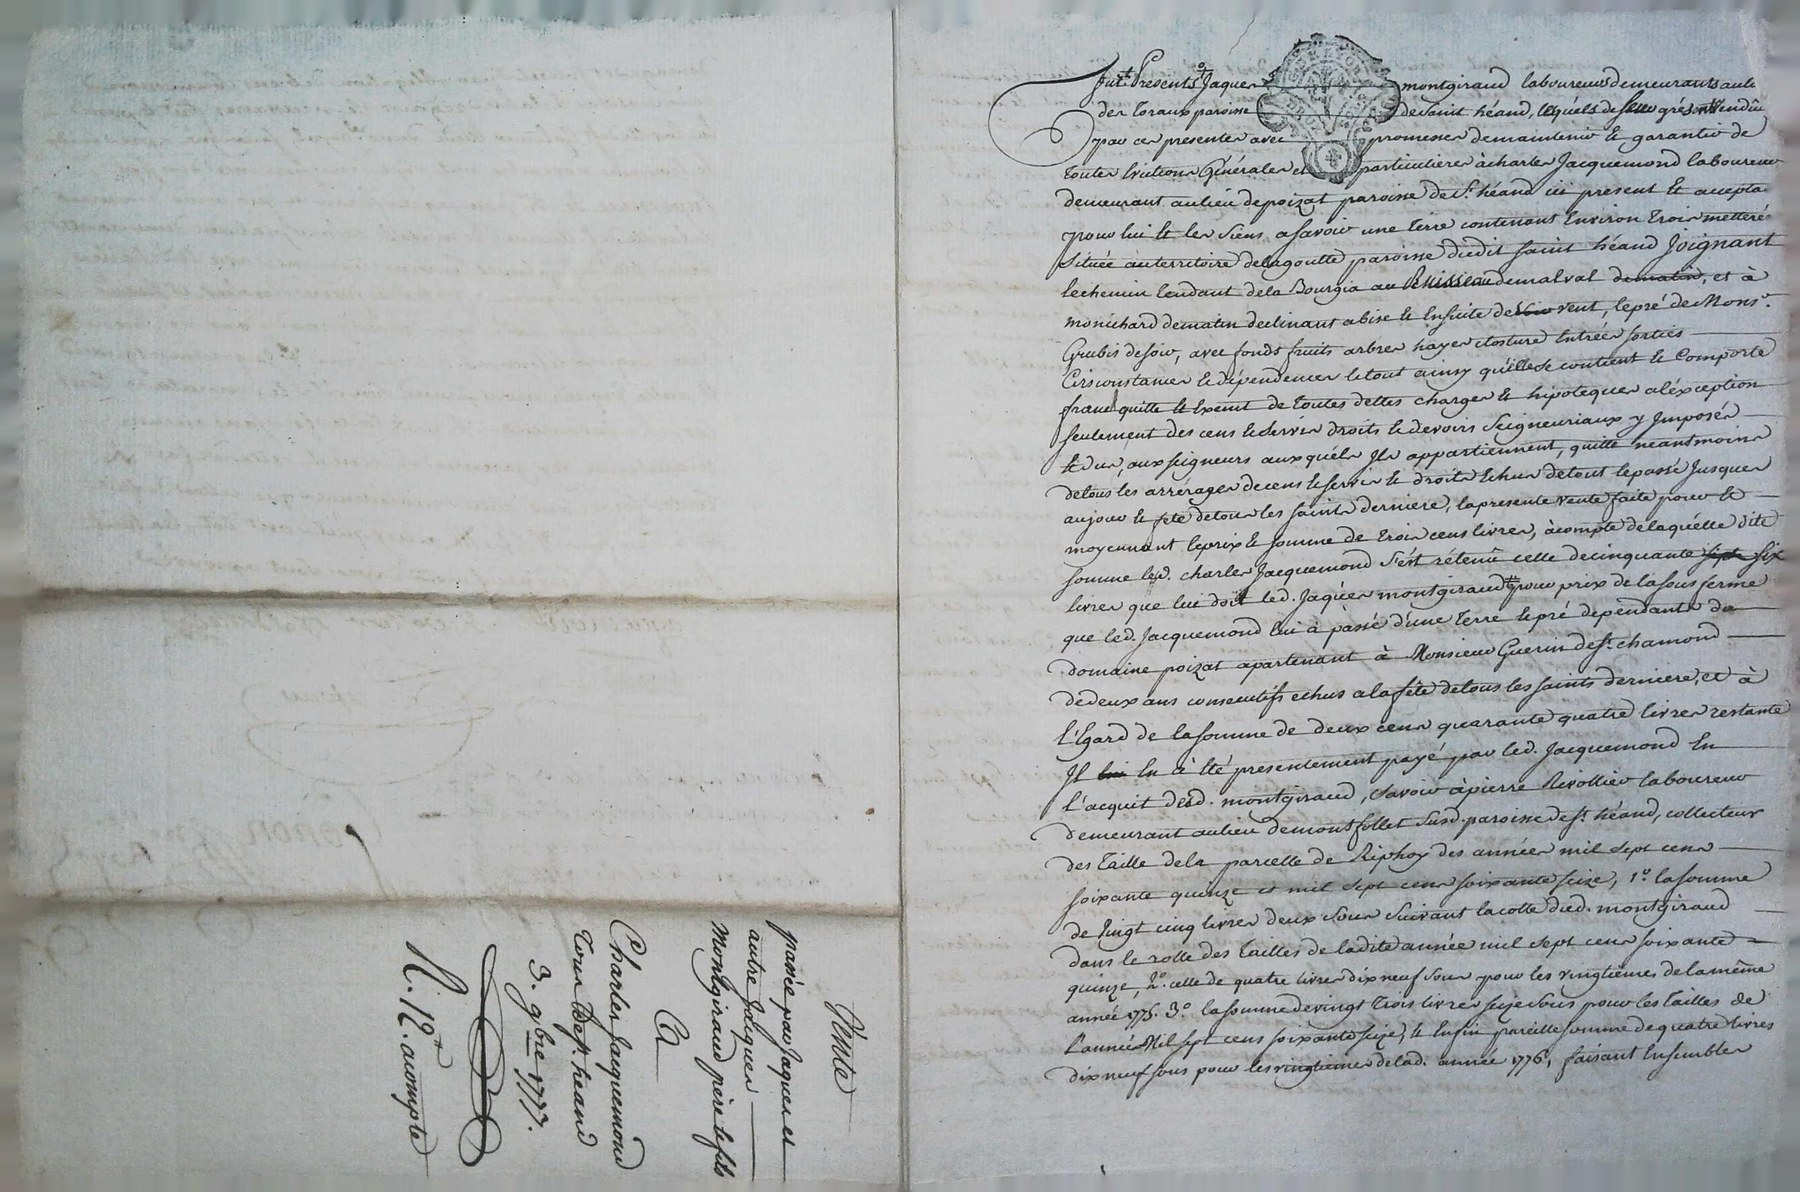 Vente
passée par Jaques et
autre Jaques
montgiraud père et fils
A
Charles Jacquemond
Tous De st. heand
3. 9bre 1777.
R. 12tt acompte
fut Presents Jaques montgiraud laboureurs demeurants au lieu
des Toraux paroisse de Saint héand, lequels de gré ont vendu
par ces presentes avec promesses de maintenir et garantir de
toutes évictions Générales et particulieres à charles Jacquemond laboureur
demeurant au lieu de poizat paroisse de St. héand ici present et accepta
pour lui et les siens a savoir une Terre contenant Environ Trois metteré
située au territoire de lagoutte paroisse dudit saint héand Joignant
le chemin tendant de la Bourgia au Ruisseau de malval de matin, et à
monichard de matin declinant a bise et Ensuite de vent, le pré de Monsr.
Grubis de soir, avec fonds fruits arbres hayes closture Entrées sorties
Circonstances et dépendences le tout ainsy qu'elle se contient et Comporte
franc quitte et Exemt de toutes dettes charges et hipoteques a l'éxception
seulement des cens et servis droits et devoirs Seigneuriaux y Imposés
et dus, aux seigneurs auxquéls Ils appartiennent, quitte neantmoins
de tous les arrérages de cens et servis et droits Echus de tout le passé Jusques
aujour et fete de tous les saints derniere, la presente vente faite pour et
moyennant le prix et somme de trois cens livres, àcompte de laquélle dite
somme led. charles Jacquemond s'ést rétenû celle de cinquante six
livres que lui doit led. Jaques montgiraud pour prix de la sous ferme
que led. Jacquemond lui à passé d'une terre et pré dépendants du
domaine poizat apartenant à Monsieur Guerin de st. chamond
de deux ans consecutifs echus a la fête de tous les saints derniere, et à
l'Egard de la somme de deux cens quarante quatre livres restante
Il En à Eté presentement payé par led. Jacquemond En
l'acquit desd. montgiraud, savoir à pierre Rivollier laboureur
demeurant au lieu de montfollet susd. paroisse de st. héand, collecteur
des Taille de la parcelle de Riphoy des années mil sept cens
soixante quinze et mil sept cens soixante seize, 1o. la somme
de Vingt cinq livres deux sous suivant la cotte dud. montgiraud
dans le rolle des tailles de ladite année mil sept cens soixante
quinze, 2o. celle de quatre livres dix neuf sous pour les vingtièmes de la même
année 1775. 3o. la somme de vingt trois livres seize sous pour les tailles de
l'année Mil sept cens soixante seize, et Enfin pareille somme de quatre livres
dix neuf sous pour les vingtiemes de lad. année 1776, faisant Ensembles